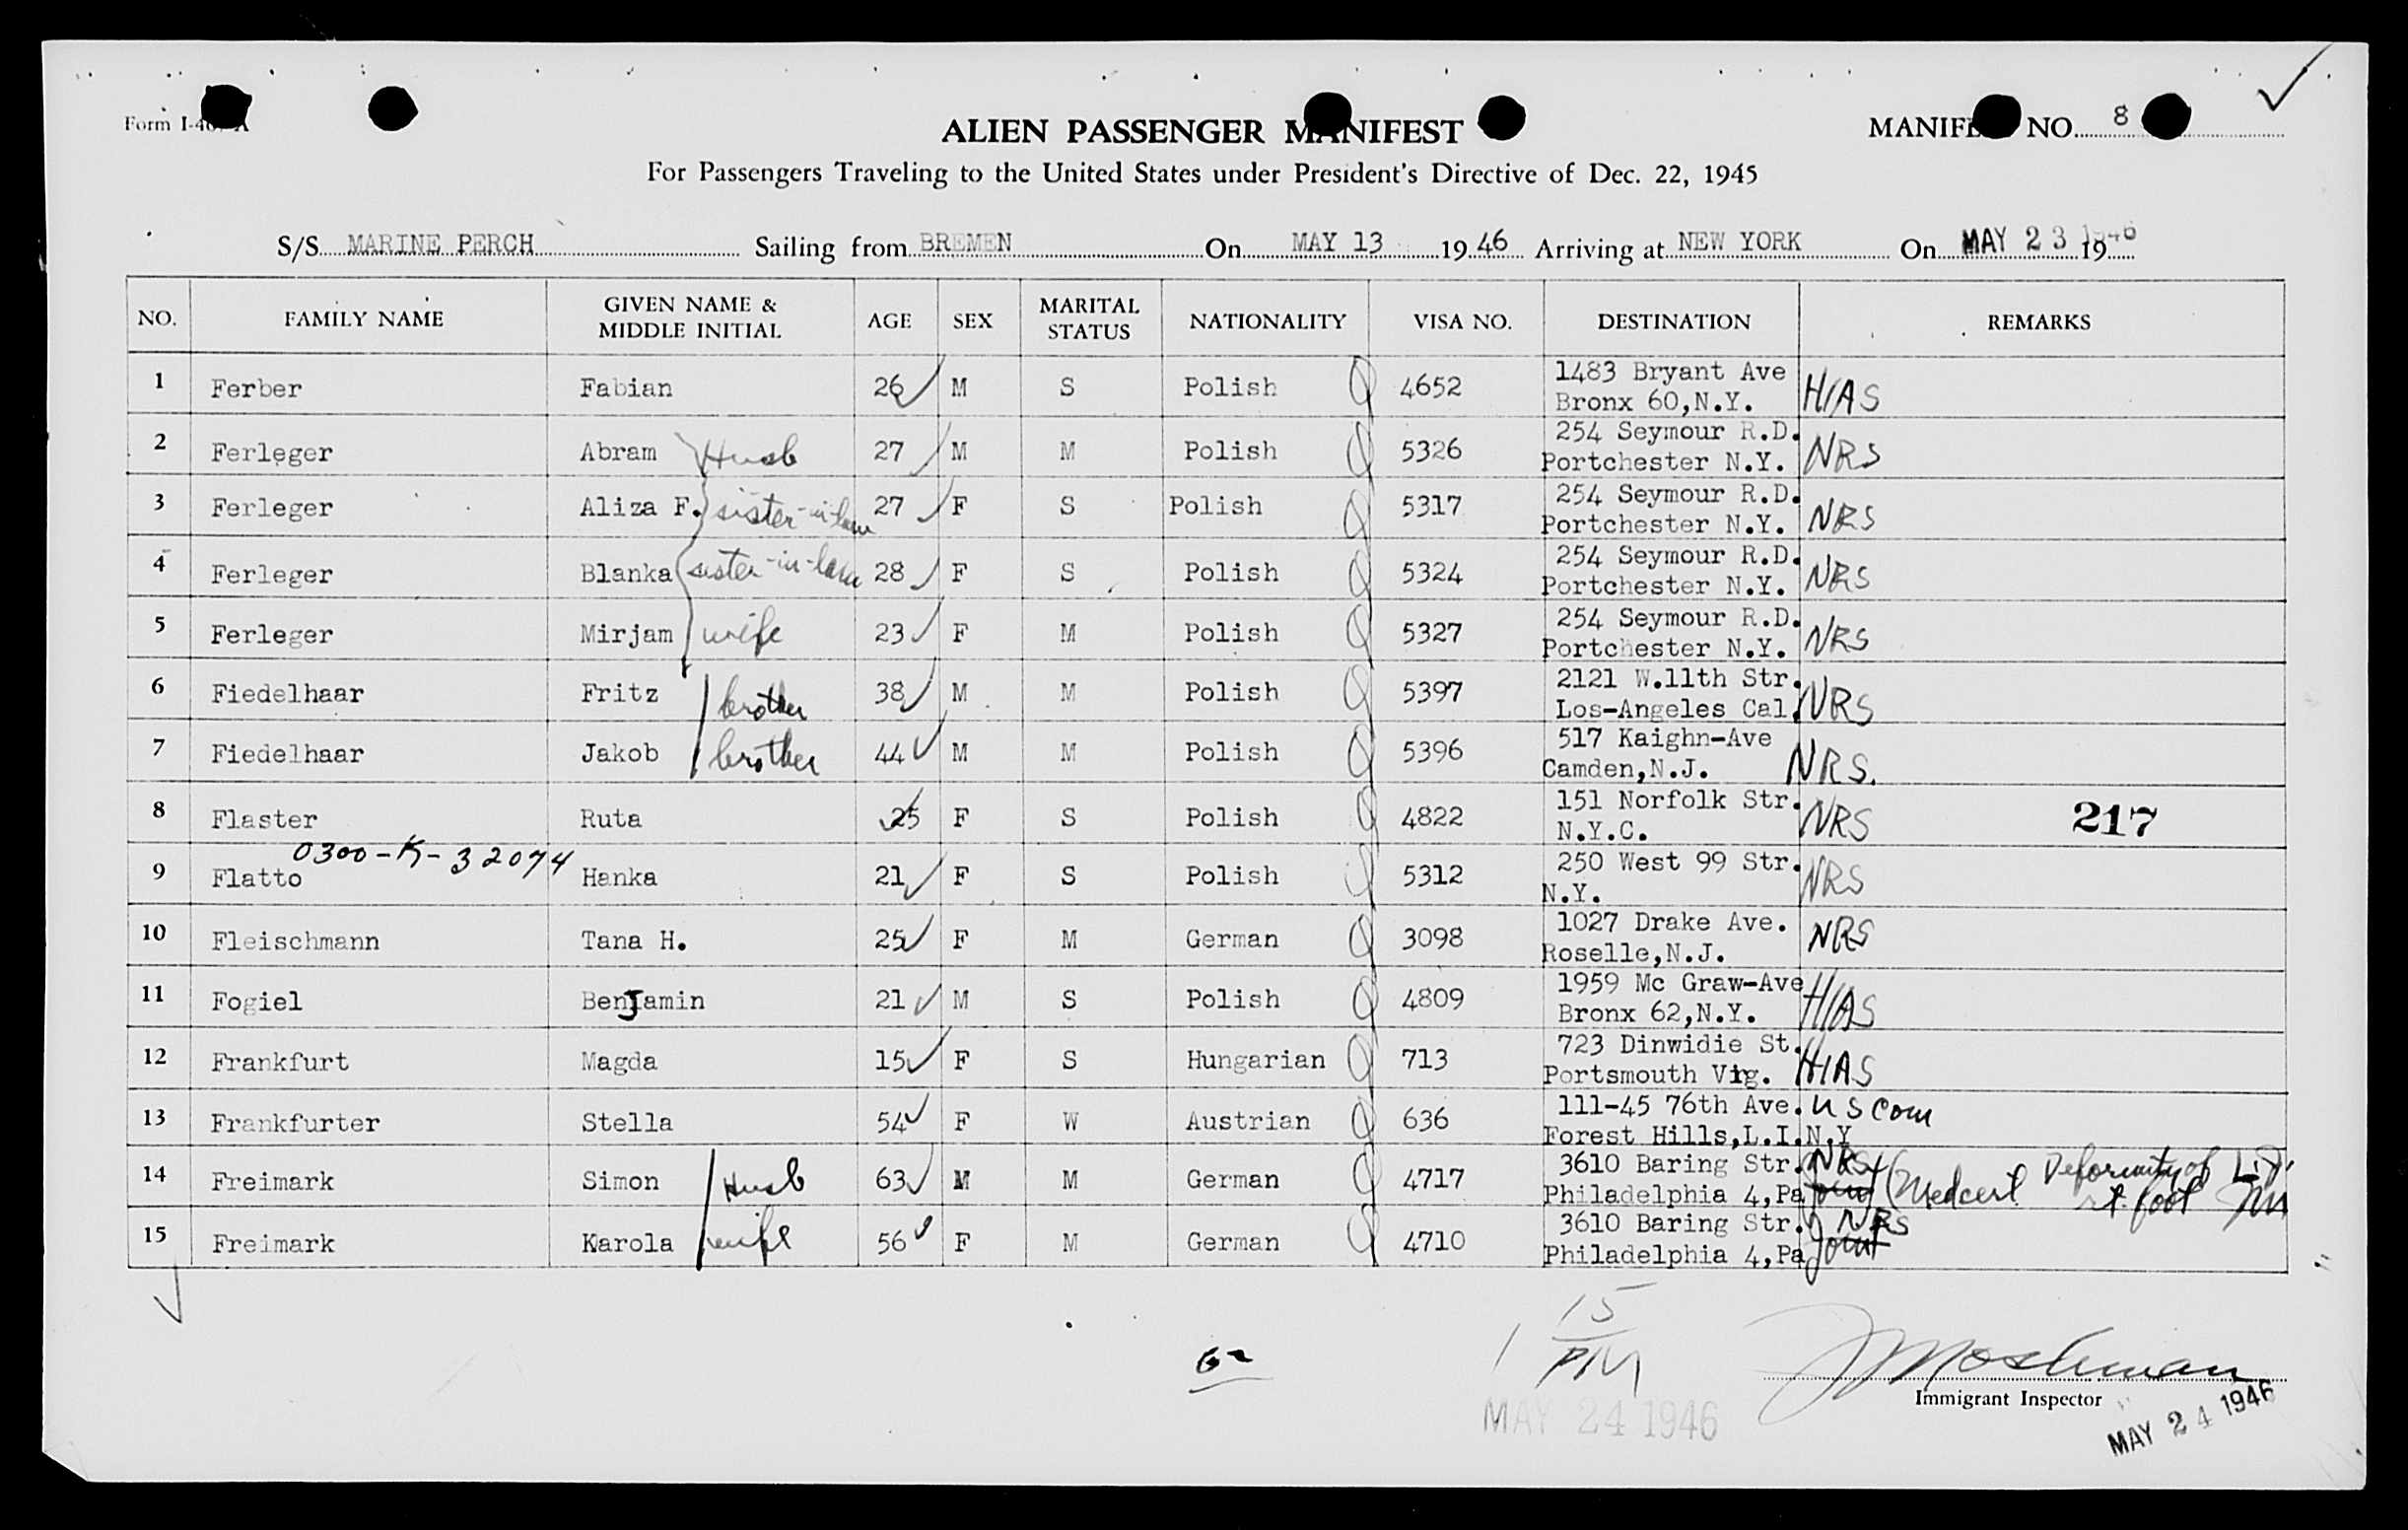 Form I-40 A
ALIEN PASSENGER MANIFEST
MANIFEST NO. 8
For Passengers Traveling to the United States under President's Directive of Dec. 22, 1945
S/S MARINE PERCH Sailing from BREMEN On MAY 13 1946 Arriving at NEW YORK On MAY 23 1946 19
NO. FAMILY NAME GIVEN NAME & MIDDLE INITIAL AGE SEX MARITAL STATUS NATIONALITY VISA NO. DESTINATION REMARKS
1 Ferber Fabian 26 M S Polish 4652 1483 Bryant Ave Bronx 60,N.Y. HIAS
2 Ferleger Abram Husb 27 M M Polish 5326 254 Seymour R.D. Portchester N.Y. NRS
3 Ferleger Aliza F. sister-in-law 27 F S Polish 5317 254 Seymour R.D. Portchester N.Y. NRS
4 Ferleger Blanka sister-in-law 28 F S Polish 5324 254 Seymour R.D. Portchester N.Y. NRS
5 Ferleger Mirjam wife 23 F M Polish 5327 254 Seymour R.D. Portchester N.Y. NRS
6 Fiedelhaar Fritz brother 38 M M Polish 5397 2121 W.11th Str. Los-Angeles Cal. NRS
7 Fiedelhaar Jakob brother 44 M M Polish 5396 517 Kaighn-Ave Camden,N.J. NRS.
8 Flaster Ruta 25 F S Polish 4822 151 Norfolk Str. N.Y.C. NRS 217
0300-K-32074
9 Flatto Hanka 21 F S Polish 5312 250 West 99 Str. N.Y. NRS
10 Fleischmann Tana H. 25 F M German 3098 1027 Drake Ave. Roselle,N.J. NRS
11 Fogiel BenJamin 21 M S Polish 4809 1959 Mc Graw-Ave Bronx 62,N.Y. HIAS
12 Frankfurt Magda 15 F S Hungarian 713 723 Dinwidie St. Portsmouth Virg. HIAS
13 Frankfurter Stella 54 F W Austrian 636 111-45 76th Ave. Forest Hills,L.I.N.Y US Com
14 Freimark Simon Husb 63 M M German 4717 3610 Baring Str. Philadelphia 4,Pa NRS Joint Medcert Deformity of rt. foot
15 Freimark Karola wife 56 F M German 4710 3610 Baring Str. Philadelphia 4,Pa NRS Joint
15
PM
MAY 24 1946
Immigrant Inspector
MAY 24 1946